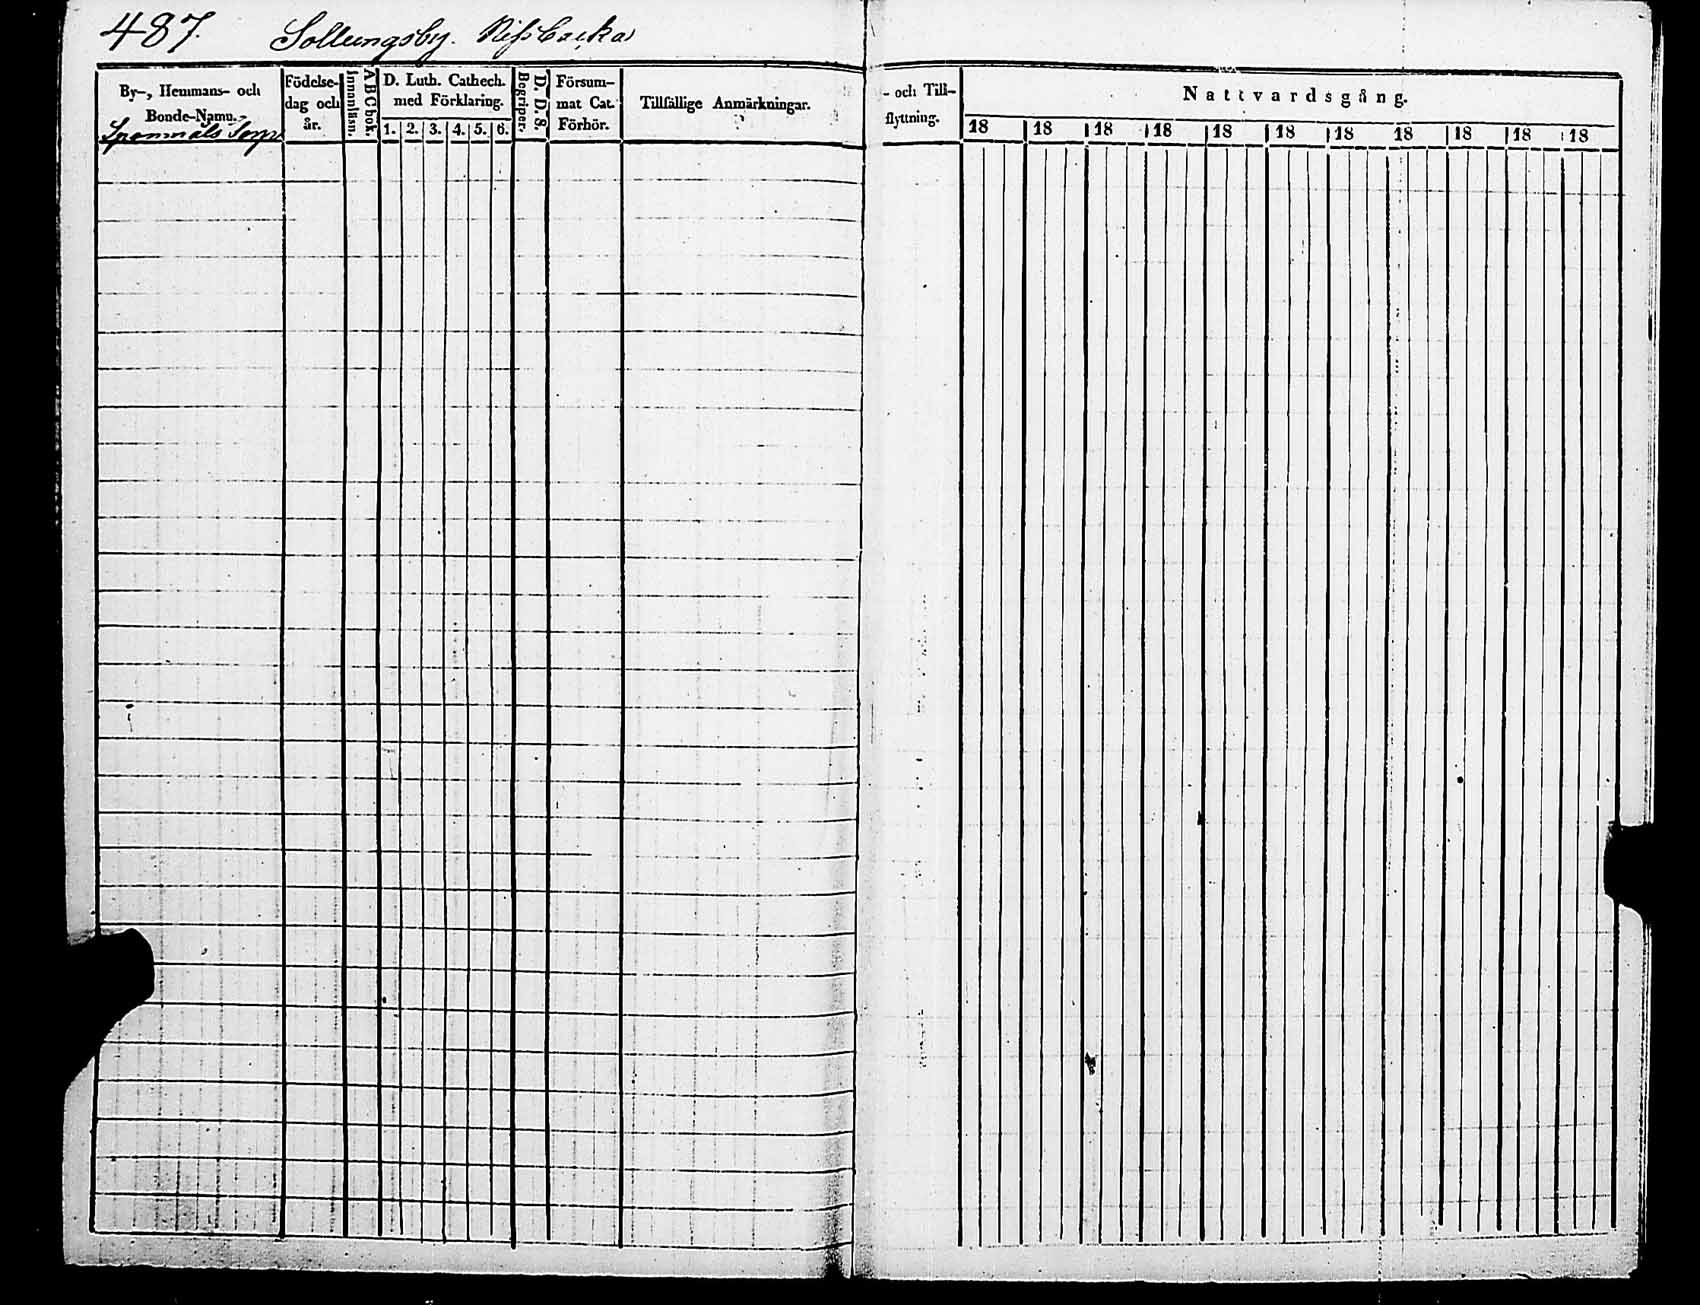 487. Sollungsby. Nissbacka
By-, Hemmans- och Bonde-Namn.
Födelse-dag och år.
Innanläsn.
A B C bok.
D. Luth. Cathech. med Förklaring.
1. 2. 3. 4. 5. 6.
Begriper.
D. D. S.
Försum-mat Cat. Förhör.
Tillfällige Anmärkningar.
- och Till-flyttning.
Nattvardsgång.
18 18 18 18 18 18 18 18 18 18 18
Torp